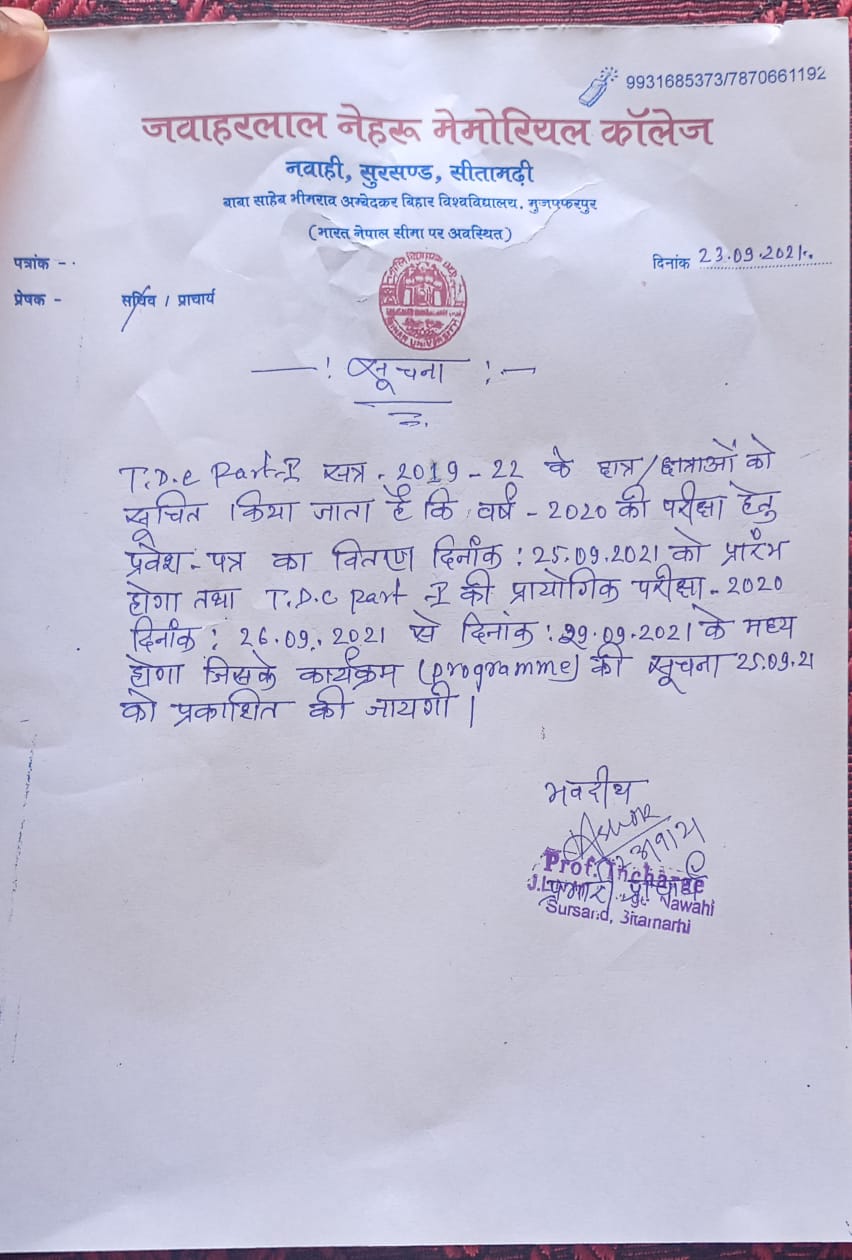 9931685373/7870661192
जवाहरलाल नेहरू मेमोरियल कॉलेज
नवाही, सुरसण्ड, सीतामढ़ी
बाबा साहेब भीमराव अम्बेदकर बिहार विश्वविद्यालय, मुजफ्फरपुर
(भारत नेपाल सीमा पर अवस्थित)
पत्रांक -
दिनांक 23.09.2021
प्रेषक - सचिव / प्राचार्य
सूचना
T.D.C Part-I सत्र - 2019-22 के छात्र/छात्राओं को
सूचित किया जाता है कि वर्ष - 2020 की परीक्षा हेतु
प्रवेश-पत्र का वितरण दिनांक : 25.09.2021 को प्रारंभ
होगा तथा T.D.C Part-I की प्रायोगिक परीक्षा-2020
दिनांक : 26.09.2021 से दिनांक : 29.09.2021 के मध्य
होगा जिसके कार्यक्रम (programme) की सूचना 25.09.21
को प्रकाशित की जायगी।
भवदीय
Prof. Incharge
प्रभारी प्राचार्य
Nawahi
Sursand, Sitamarhi